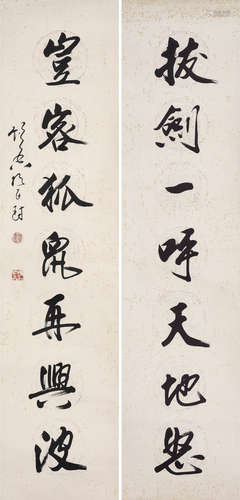 拔劍一呼天地愁
豈容狐鼠再興波